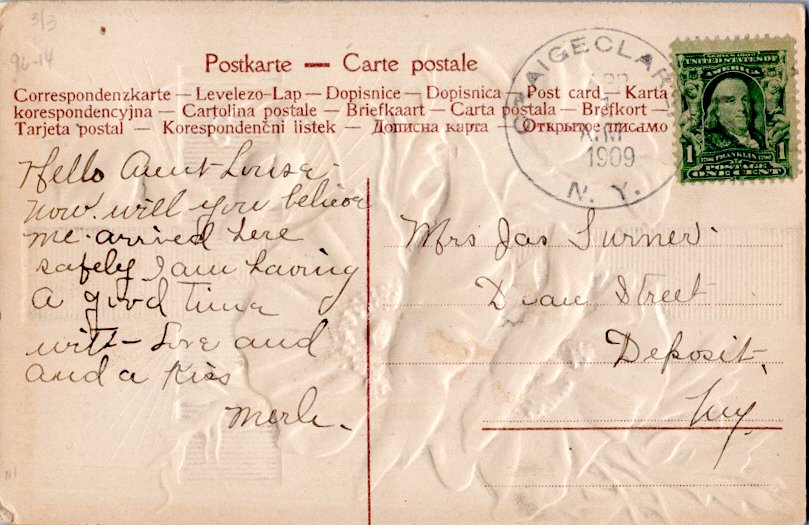 3/3
96-14
Postkarte — Carte postale
Correspondenzkarte — Levelezo-Lap — Dopisnice — Dopisnica — Post card — Karta
korespondencyjna — Cartolina postale — Briefkaart — Carta postala — Brefkort —
Tarjeta postal — Korespondenčni listek — Дописна карта — Открытое письмо
CRAIGECLARE
APR
A.M
1909
N. Y.
SERIES 1902
UNITED STATES OF
AMERICA
FRANKLIN
1 1
POSTAGE
ONE CENT
Hello Aunt Louisa-
Now will you believe
me. arrived here
safely I am having
a good time
with - Love and
and a Kiss
Merle-
Mrs Jas Turner.
Dean Street
Deposit,
N.Y.